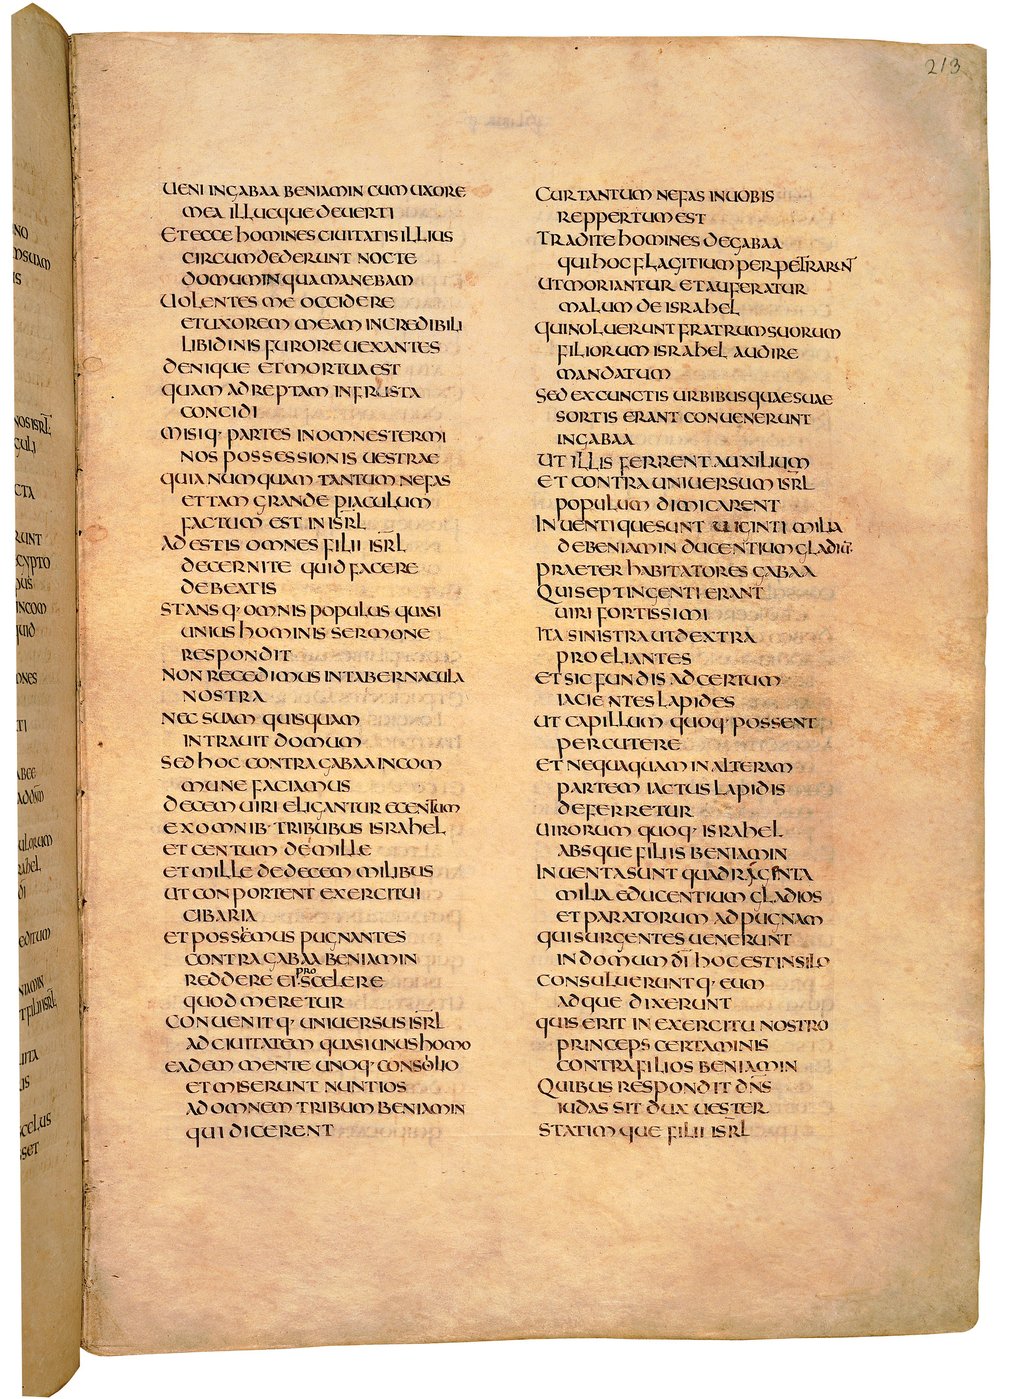 213
UENI INGABAA BENIAMIN CUM UXORE
MEA ILLUCQUE DEUERTI
ET ECCE HOMINES CIUITATIS ILLIUS
CIRCUMDEDERUNT NOCTE
DOMUM IN QUA MANEBAM
UOLENTES ME OCCIDERE
ET UXOREM MEAM INCREDIBILI
LIBIDINIS FURORE UEXANTES
DENIQUE ET MORTUA EST
QUAM ADREPTAM IN FRUSTA
CONCIDI
MISIQ· PARTES IN OMNES TERMI
NOS POSSESSIONIS UESTRAE
QUIA NUMQUAM TANTUM NEFAS
ET TAM GRANDE PIACULUM
FACTUM EST IN ISRL̄
ADESTIS OMNES FILII ISRL̄
DECERNITE QUID FACERE
DEBEATIS
STANSQ· OMNIS POPULUS QUASI
UNIUS HOMINIS SERMONE
RESPONDIT
NON RECEDIMUS IN TABERNACULA
NOSTRA
NEC SUAM QUISQUAM
INTRAUIT DOMUM
SED HOC CONTRA GABAA IN COM
MUNE FACIAMUS
DECEM UIRI ELIGANTUR E CENTUM
EX OMNIB· TRIBUBUS ISRAHEL
ET CENTUM DE MILLE
ET MILLE DE DECEM MILIBUS
UT CONPORTENT EXERCITUI
CIBARIA
ET POSSEMUS PUGNANTES
CONTRA GABAA BENIAMIN
REDDERE EI PRO SCELERE
QUOD MERETUR
CONUENITQ· UNIUERSUS ISRL̄
AD CIUITATEM QUASI UNUS HOMO
EADEM MENTE UNOQ· CONSILIO
ET MISERUNT NUNTIOS
AD OMNEM TRIBUM BENIAMIN
QUI DICERENT
CUR TANTUM NEFAS IN UOBIS
REPPERTUM EST
TRADITE HOMINES DE GABAA
QUI HOC FLAGITIUM PERPETRARUNT
UT MORIANTUR ET AUFERATUR
MALUM DE ISRAHEL
QUI NOLUERUNT FRATRUM SUORUM
FILIORUM ISRAHEL AUDIRE
MANDATUM
SED EX CUNCTIS URBIBUS QUAE SUAE
SORTIS ERANT CONUENERUNT
IN GABAA
UT ILLIS FERRENT AUXILIUM
ET CONTRA UNIUERSUM ISRL̄
POPULUM DIMICARENT
INUENTIQUE SUNT UICINTI MILIA
DE BENIAMIN DUCENTIUM GLADIŪ
PRAETER HABITATORES GABAA
QUI SEPTINGENTI ERANT
UIRI FORTISSIMI
ITA SINISTRA UT DEXTRA
PROELIANTES
ET SIC FUNDIS AD CERTUM
IACIENTES LAPIDES
UT CAPILLUM QUOQ· POSSENT
PERCUTERE
ET NEQUAQUAM IN ALTERAM
PARTEM IACTUS LAPIDIS
DEFERRETUR
UIRORUM QUOQ· ISRAHEL
ABSQUE FILIIS BENIAMIN
INUENTA SUNT QUADRAGINTA
MILIA EDUCENTIUM GLADIOS
ET PARATORUM AD PUGNAM
QUI SURGENTES UENERUNT
IN DOMUM DĪ HOC EST IN SILO
CONSULUERUNTQ· EUM
ADQUE DIXERUNT
QUIS ERIT IN EXERCITU NOSTRO
PRINCEPS CERTAMINIS
CONTRA FILIOS BENIAMIN
QUIBUS RESPONDIT DN̄S
IUDAS SIT DUX UESTER
STATIMQUE FILII ISRL̄